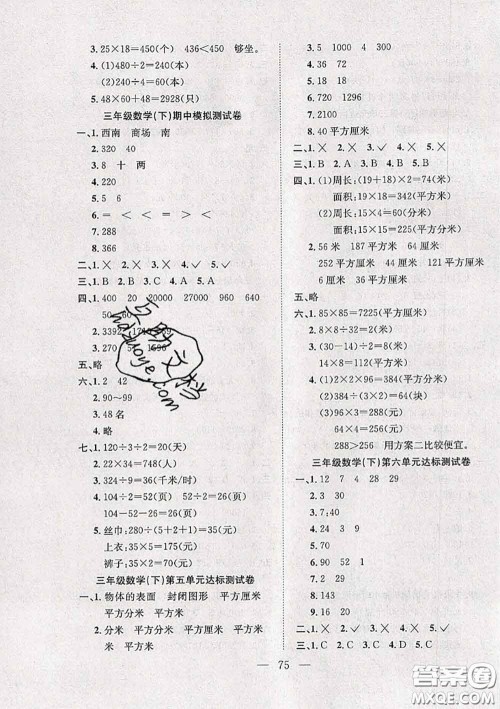 3. 25×18=450(个)　436<450　够坐。
4. (1)480÷2=240(本)
(2)240÷4=60(本)
5. 48×60+48=2928(只)
三年级数学(下)期中模拟测试卷
一、1. 西南　商场　南
2. 320　40
3. 8　十　两
4. 220
6. =　<　<　=　>　<
7. 288
8. 366
二、1. ×　2. ×　3. ×　4. ✓　5. ✓
三、1. B　2. A　3. C　4. A　5. C
四、1. 400　20　20000　27000　960　640
50　60
2. 3392
3. 270
五、略
六、1. 2　42
2. 90~99
3. 48名
七、1. 120÷3÷2=20(天)
2. 22×34=748(人)
3. 324÷9=36(千米/时)
4. 104÷2=52(页)　52÷2=26(页)
104-52-26=26(页)
5. 丝巾：280÷(5+1+2)=35(元)
上衣：35×5=175(元)
裤子：35×2=70(元)
三年级数学(下)第五单元达标测试卷
一、1. 物体的表面　封闭图形　平方厘米
平方分米　平方米
2. 分米　平方分米　平方厘米　平方米
厘米　平方米
3. 5　1000　4　300
4. 36　72
5. 18　16
6. 12
7. 2100
8. 40平方厘米
二、1. ×　2. ×　3. ×　4. ✓　5. ×
三、1. B　2. A　3. B　4. B　5. B
四、1. (1)周长：(19+18)×2=74(厘米)
面积：19×18=342(平方厘米)
(2)周长：15×4=60(分米)
面积：15×15=225(平方分米)
2. 56米　187平方米　64厘米
252平方厘米　41分米　100平方分米
6厘米　36厘米　180平方厘米
五、略
六、1. 85×85=7225(平方厘米)
2. 8×8÷4×2=32(米)
3. (30-14)÷2=8(厘米)
14×8=112(平方厘米)
4. (1)24×16=384(平方分米)
(2)384÷(2×3)=64(块)
(3)64×4=256(元)
384÷4×3=288(元)
288>256　用方案二比较便宜。
三年级数学(下)第六单元达标测试卷
一、1. 12　7　4　28　29
2. 3
3. 7:40
4. 3
5. 90
6. 30　52　1
7. 14
8. 29
9. 15
10. 9
二、1. ×　2. ×　3. ✓　4. ×　5. ✓
三、1. C　2. C　3. A　4. B　5. C
75
答案圈
MXQE.COM